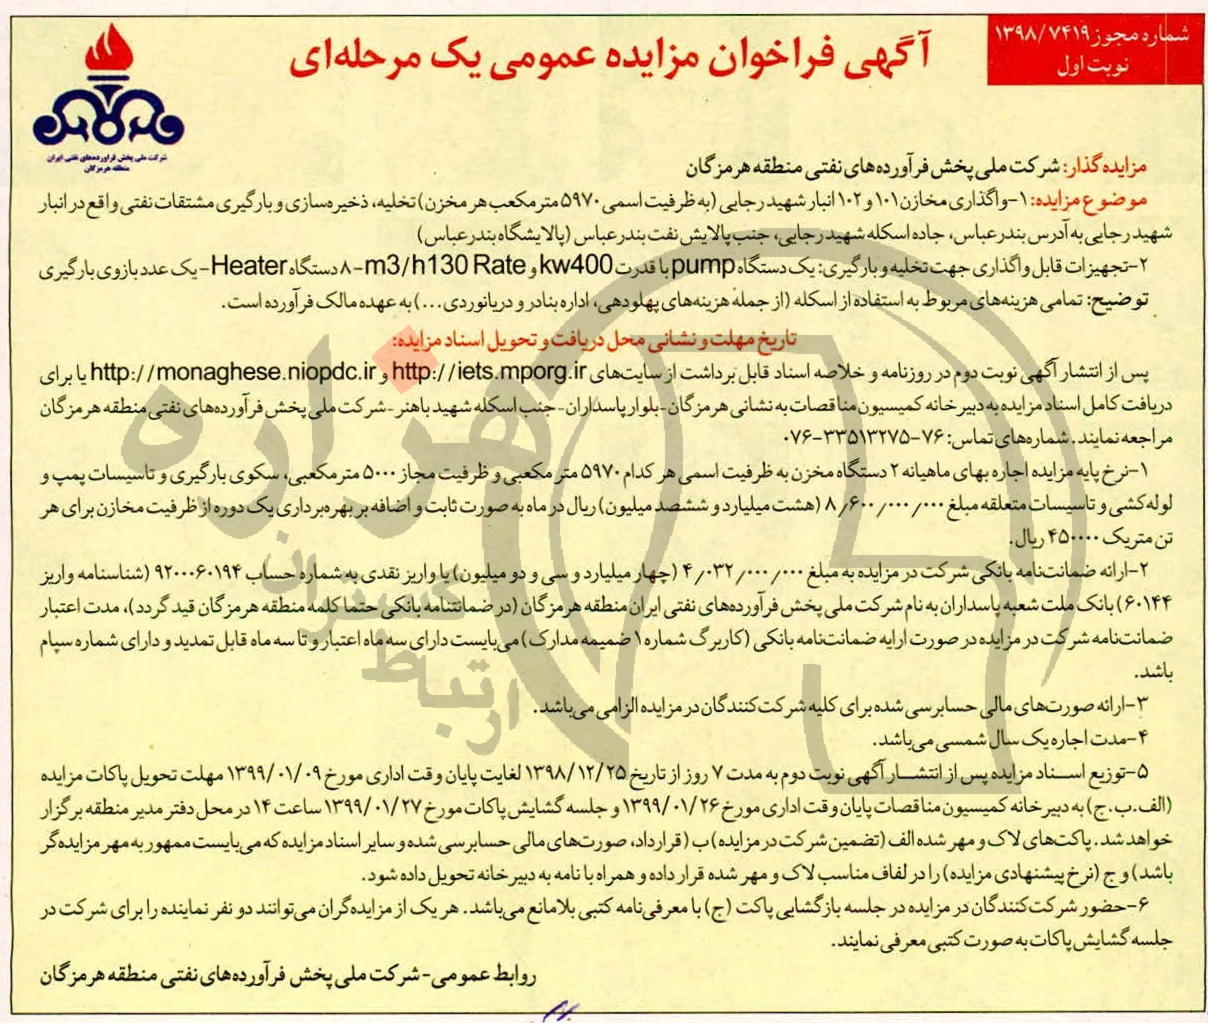 شماره مجوز ۱۳۹۸/۷۴۱۹
نوبت اول
آگهی فراخوان مزایده عمومی یک مرحله‌ای
شرکت ملی پخش فرآورده‌های نفتی ایران
منطقه هرمزگان
مزایده‌گذار: شرکت ملی پخش فرآورده‌های نفتی منطقه هرمزگان
موضوع مزایده: ۱-واگذاری مخازن ۱۰۱ و ۱۰۲ انبار شهید رجایی (به ظرفیت اسمی ۵۹۷۰ متر مکعب هر مخزن) تخلیه، ذخیره‌سازی و بارگیری مشتقات نفتی واقع در انبار
شهید رجایی به آدرس بندرعباس، جاده اسکله شهید رجایی، جنب پالایش نفت بندرعباس (پالایشگاه بندرعباس)
۲-تجهیزات قابل واگذاری جهت تخلیه و بارگیری: یک دستگاه pump با قدرت kw400 و m3/h130 Rate-۸ دستگاه Heater-یک عدد بازوی بارگیری
توضیح: تمامی هزینه‌های مربوط به استفاده از اسکله (از جمله هزینه‌های پهلودهی، اداره بنادر و دریانوردی...) به عهده مالک فرآورده است.
تاریخ مهلت و نشانی محل دریافت و تحویل اسناد مزایده:
پس از انتشار آگهی نوبت دوم در روزنامه و خلاصه اسناد قابل برداشت از سایت‌های http://iets.mporg.ir و http://monaghese.niopdc.ir یا برای
دریافت کامل اسناد مزایده به دبیرخانه کمیسیون مناقصات به نشانی هرمزگان-بلوار پاسداران-جنب اسکله شهید باهنر-شرکت ملی پخش فرآورده‌های نفتی منطقه هرمزگان
مراجعه نمایند. شماره‌های تماس: ۷۶-۳۳۵۱۳۲۷۵-۰۷۶
۱-نرخ پایه مزایده اجاره بهای ماهیانه ۲ دستگاه مخزن به ظرفیت اسمی هر کدام ۵۹۷۰ متر مکعبی و ظرفیت مجاز ۵۰۰۰ مترمکعبی، سکوی بارگیری و تاسیسات پمپ و
لوله‌کشی و تاسیسات متعلقه مبلغ ۸٫۶۰۰٫۰۰۰٫۰۰۰ (هشت میلیارد و ششصد میلیون) ریال در ماه به صورت ثابت و اضافه بر بهره‌برداری یک دوره از ظرفیت مخازن برای هر
تن متریک ۴۵۰۰۰۰ ریال.
۲-ارائه ضمانت‌نامه بانکی شرکت در مزایده به مبلغ ۴٫۰۳۲٫۰۰۰٫۰۰۰ (چهار میلیارد و سی و دو میلیون) یا واریز نقدی به شماره حساب ۹۲۰۰۰۶۰۱۹۴ (شناسنامه واریز
۶۰۱۴۴) بانک ملت شعبه پاسداران به نام شرکت ملی پخش فرآورده‌های نفتی ایران منطقه هرمزگان (در ضمانتنامه بانکی حتما کلمه منطقه هرمزگان قید گردد)، مدت اعتبار
ضمانت‌نامه شرکت در مزایده در صورت ارایه ضمانت‌نامه بانکی (کاربرگ شماره ۱ ضمیمه مدارک) می‌بایست دارای سه ماه اعتبار و تا سه ماه قابل تمدید و دارای شماره سپام
باشد.
۳-ارائه صورت‌های مالی حسابرسی شده برای کلیه شرکت‌کنندگان در مزایده الزامی می‌باشد.
۴-مدت اجاره یک سال شمسی می‌باشد.
۵-توزیع اسناد مزایده پس از انتشار آگهی نوبت دوم به مدت ۷ روز از تاریخ ۱۳۹۸/۱۲/۲۵ لغایت پایان وقت اداری مورخ ۱۳۹۹/۰۱/۰۹ مهلت تحویل پاکات مزایده
(الف.ب.ج) به دبیرخانه کمیسیون مناقصات پایان وقت اداری مورخ ۱۳۹۹/۰۱/۲۶ و جلسه گشایش پاکات مورخ ۱۳۹۹/۰۱/۲۷ ساعت ۱۴ در محل دفتر مدیر منطقه برگزار
خواهد شد. پاکت‌های لاک و مهر شده الف (تضمین شرکت در مزایده) ب (قرارداد، صورت‌های مالی حسابرسی شده و سایر اسناد مزایده که می‌بایست ممهور به مهر مزایده‌گر
باشد) و ج (نرخ پیشنهادی مزایده) را در لفاف مناسب لاک و مهر شده قرار داده و همراه با نامه به دبیرخانه تحویل داده شود.
۶-حضور شرکت‌کنندگان در مزایده در جلسه بازگشایی پاکت (ج) با معرفی‌نامه کتبی بلامانع می‌باشد. هر یک از مزایده‌گران می‌توانند دو نفر نماینده را برای شرکت در
جلسه گشایش پاکات به صورت کتبی معرفی نمایند.
روابط عمومی-شرکت ملی پخش فرآورده‌های نفتی منطقه هرمزگان
هزاره
گستران
ارتباط